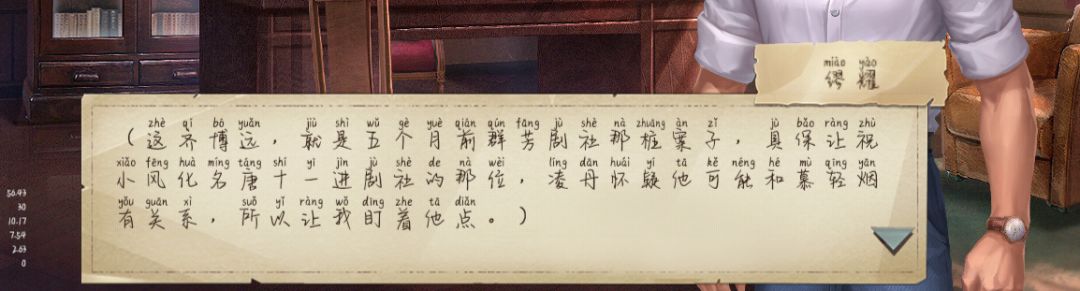 miào yào
缪耀
zhè qí bó yuǎn jiù shì wǔ gè yuè qián qún fāng jù shè nà zhuāng àn zǐ jù bǎo ràng zhù
（这齐博远，就是五个月前群芳剧社那桩案子，具保让祝
xiǎo fēng huà míng táng shí yī jìn jù shè de nà wèi líng dān huái yí tā kě néng hé mù qīng yān
小风化名唐十一进剧社的那位，凌丹怀疑他可能和慕轻烟
yǒu guān xì suǒ yǐ ràng wǒ dīng zhe tā diǎn
有关系，所以让我盯着他点。）
56.43
30
10.17
7.54
2.63
0